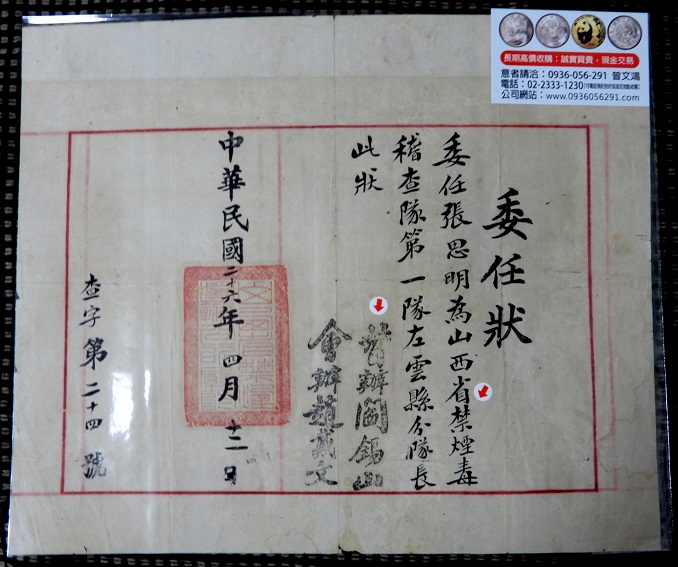 委任狀
委任張思明為山西省禁煙毒
稽查隊第一隊左雲縣分隊長
此狀
督辦閻錫山
會辦趙戴文
中華民國二十六年四月十二日
查字第二十四號
長期高價收購：誠實買賣，現金交易
意者請洽：0936-056-291 曾文鴻
電話：02-2333-1230
公司網站：www.0936056291.com